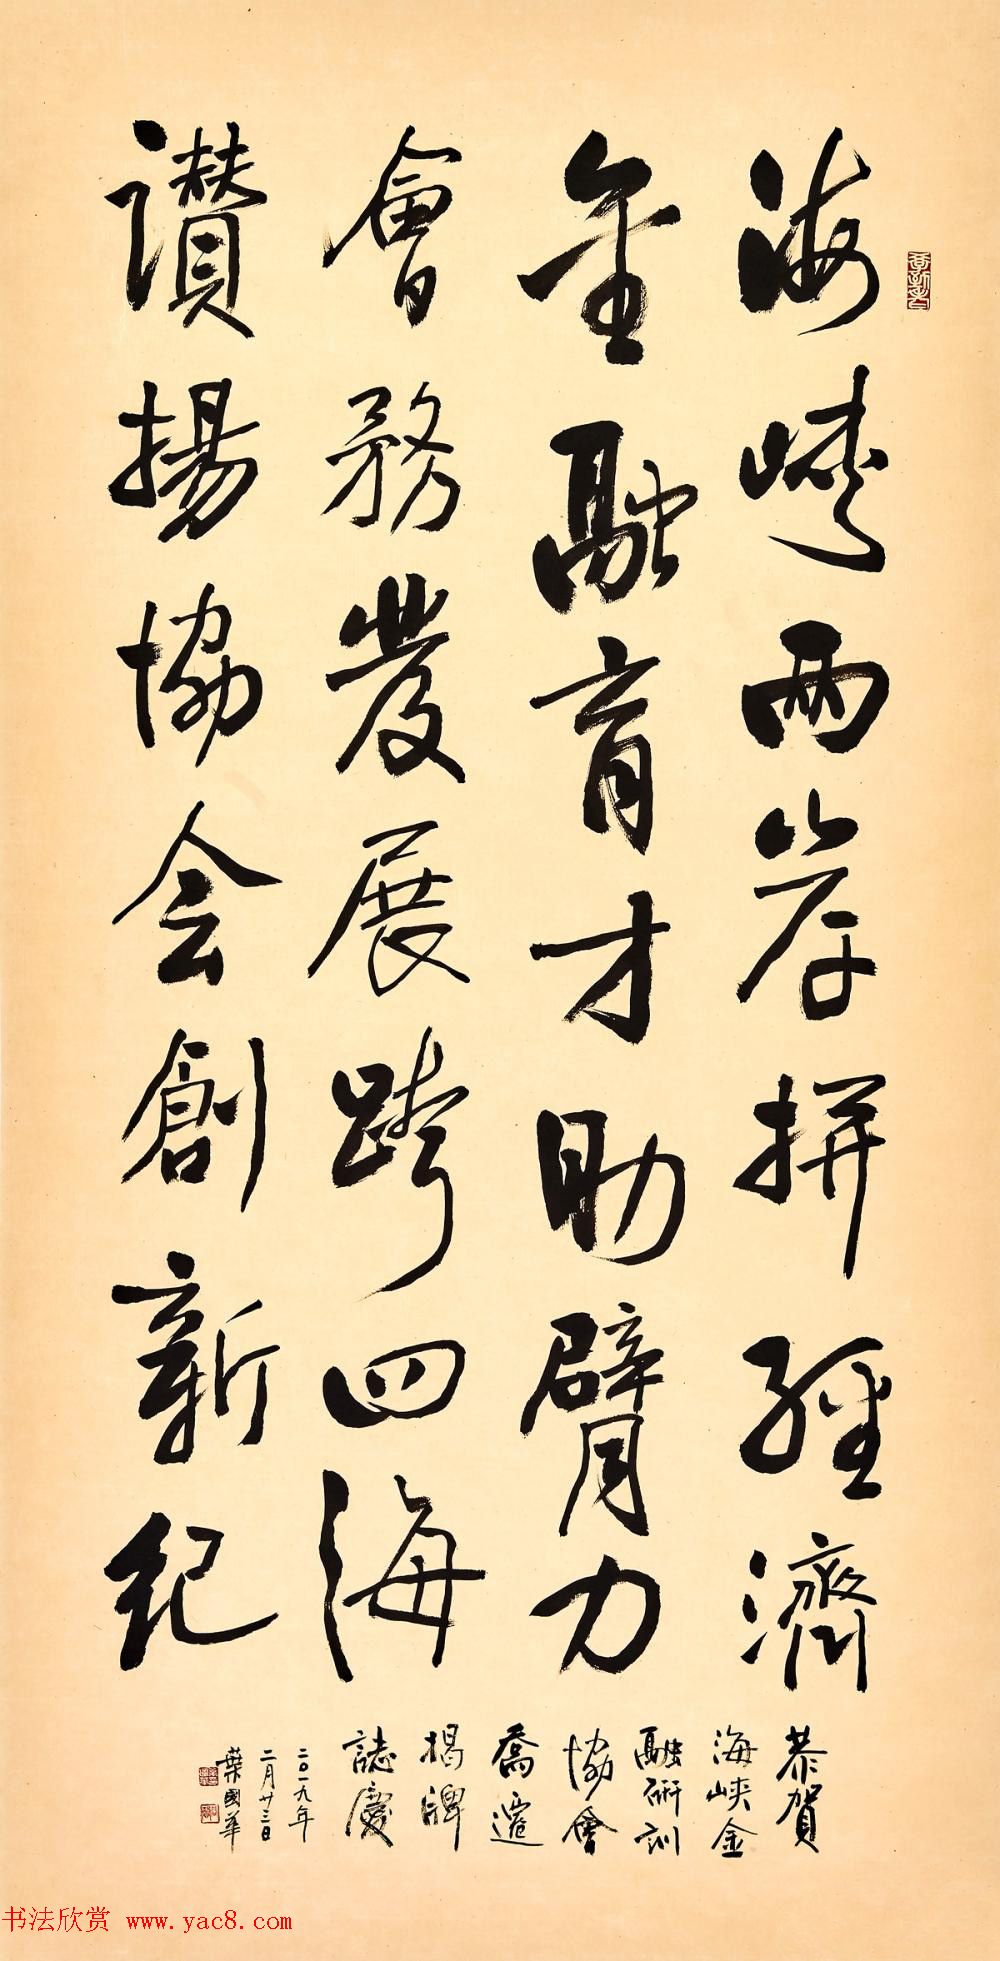 海峽两岸拼經濟
金融育才助臂力
會務發展跨四海
讃揚協会創新紀
恭賀
海峡金
融研訓
協會
喬遷
揭牌
誌慶
二〇一九年
二月廿三日
葉國華
书法欣赏 www.yac8.com